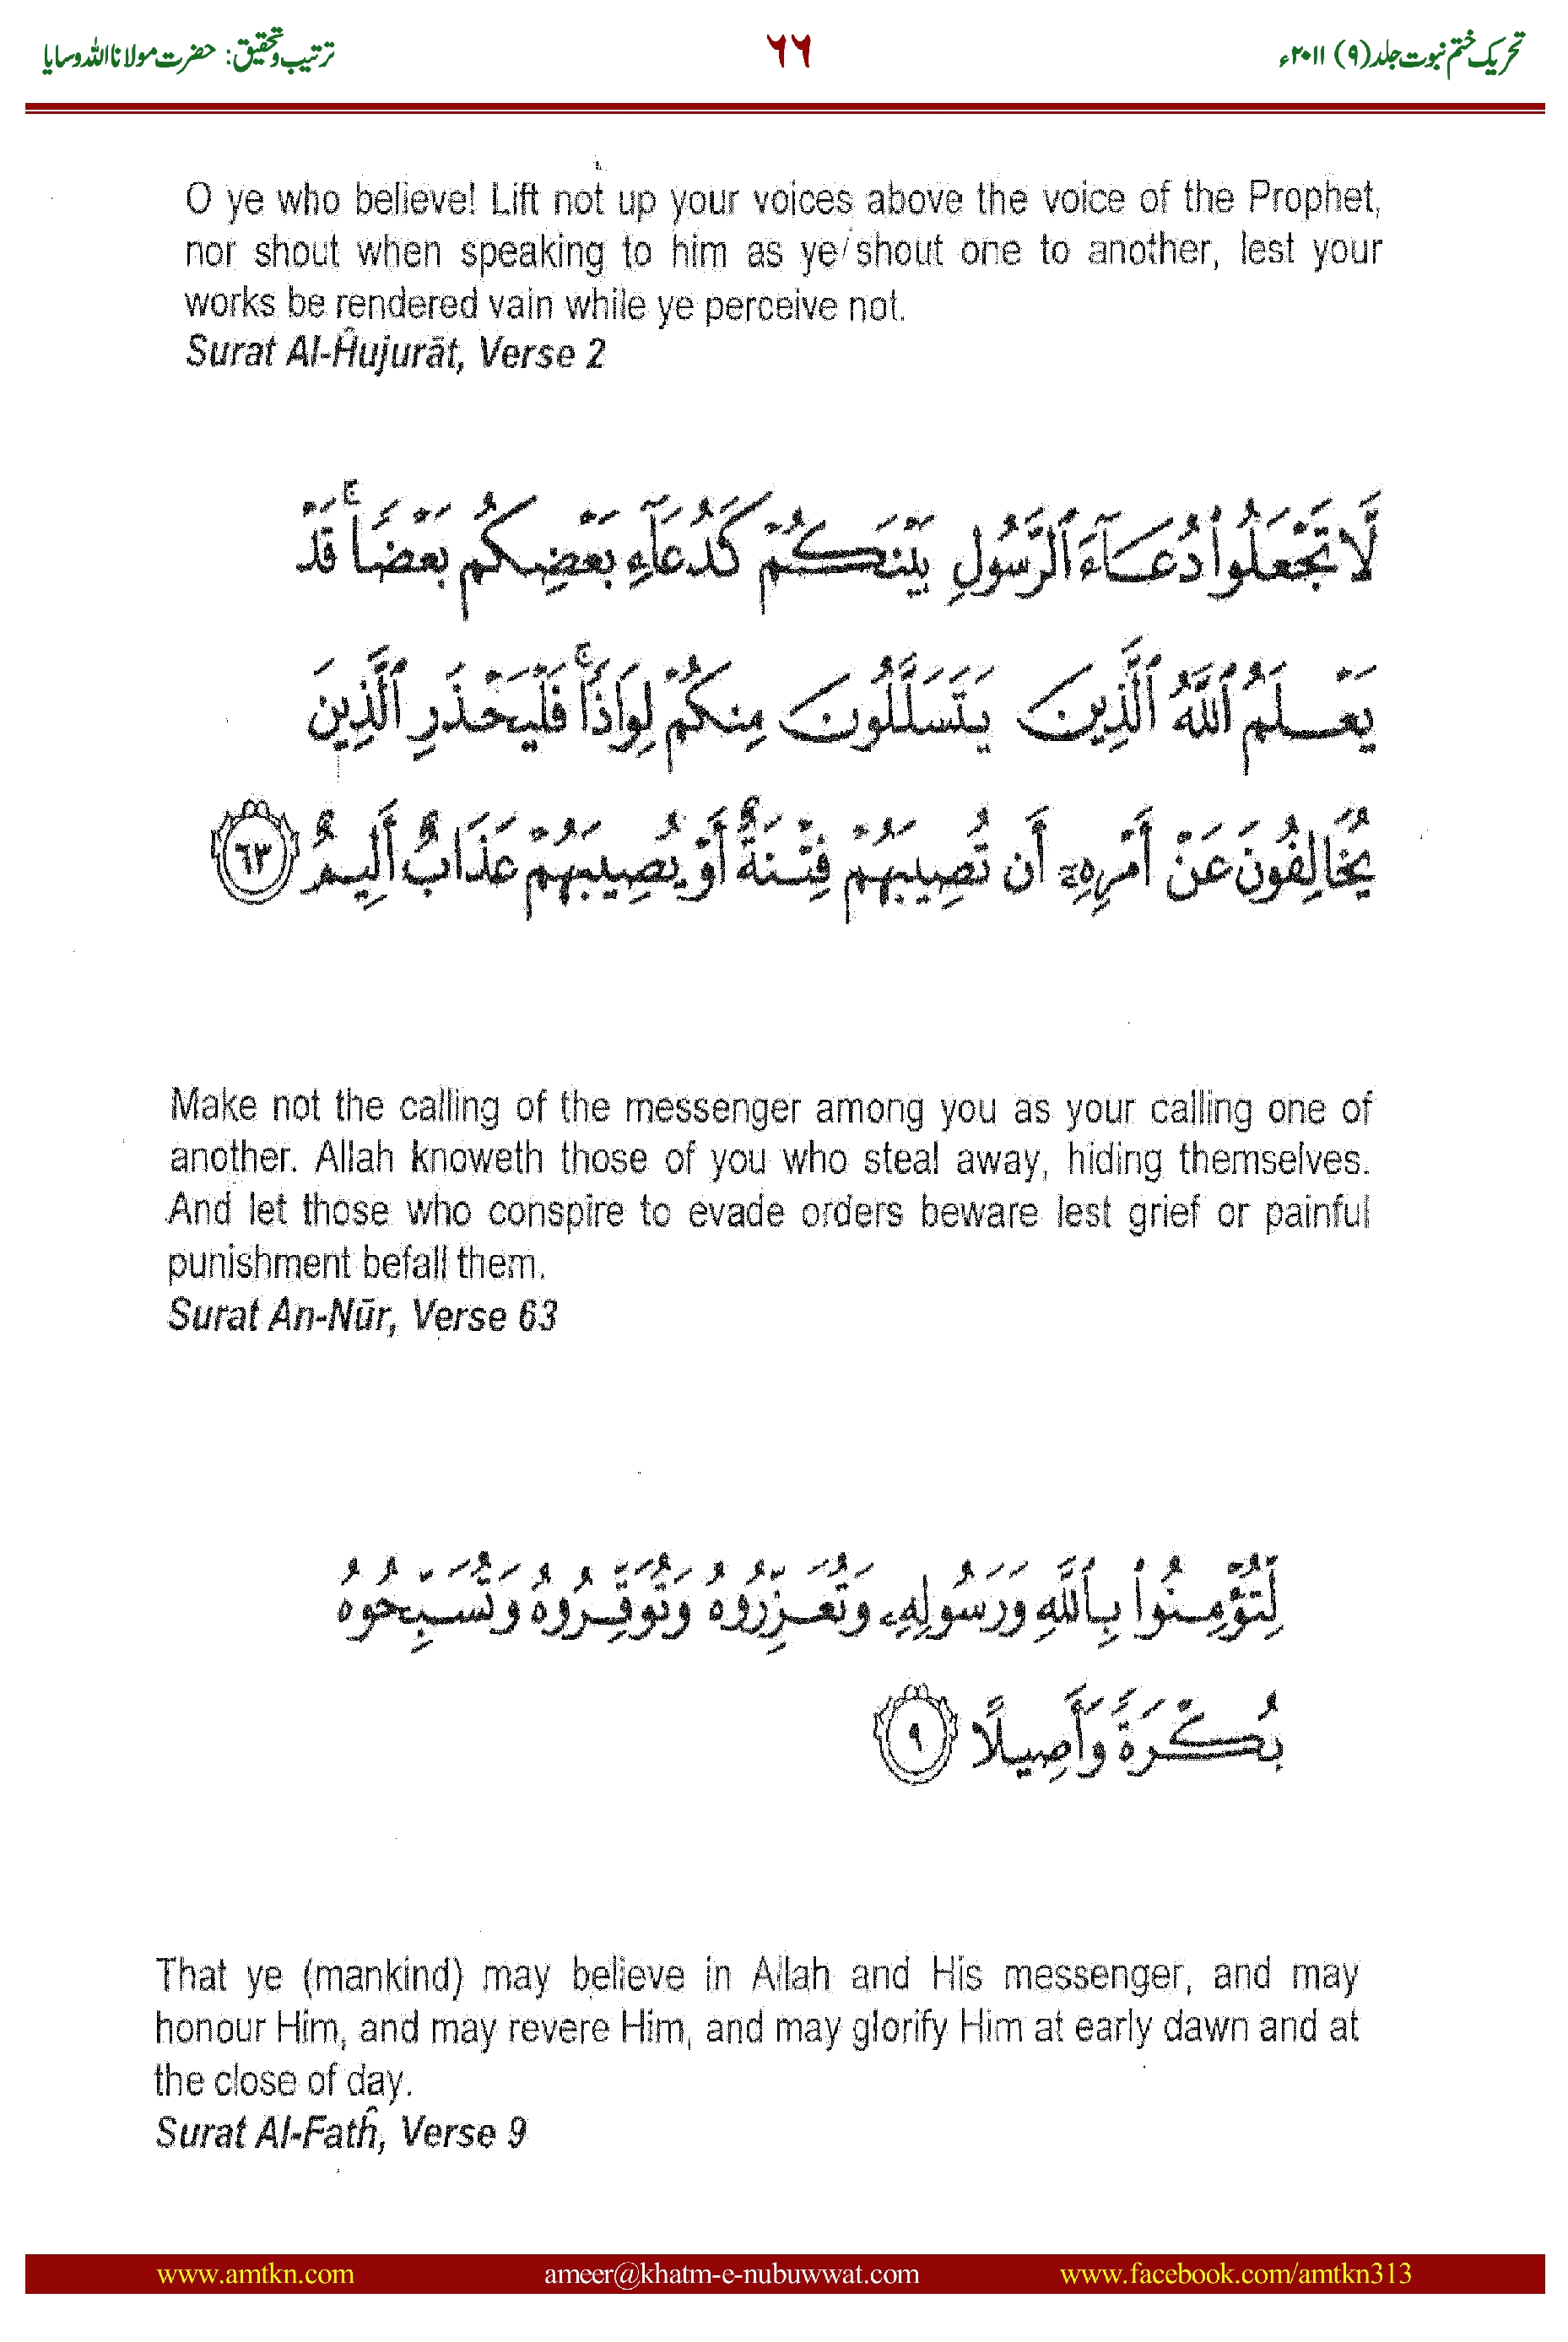 تحریک ختم نبوت جلد(۹) ۲۰۱۱ء
۶۶
ترتیب وتحقیق: حضرت مولانا اللہ وسایا
O ye who believe! Lift not up your voices above the voice of the Prophet,
nor shout when speaking to him as ye shout one to another, lest your
works be rendered vain while ye perceive not.
Surat Al-Ĥujurāt, Verse 2
لَّا تَجْعَلُوا۟ دُعَآءَ ٱلرَّسُولِ بَيْنَكُمْ كَدُعَآءِ بَعْضِكُم بَعْضًا ۚ قَدْ
يَعْلَمُ ٱللَّهُ ٱلَّذِينَ يَتَسَلَّلُونَ مِنكُمْ لِوَاذًا ۚ فَلْيَحْذَرِ ٱلَّذِينَ
يُخَالِفُونَ عَنْ أَمْرِهِۦٓ أَن تُصِيبَهُمْ فِتْنَةٌ أَوْ يُصِيبَهُمْ عَذَابٌ أَلِيمٌ ٦٣
Make not the calling of the messenger among you as your calling one of
another. Allah knoweth those of you who steal away, hiding themselves.
And let those who conspire to evade orders beware lest grief or painful
punishment befall them.
Surat An-Nūr, Verse 63
لِّتُؤْمِنُوا۟ بِٱللَّهِ وَرَسُولِهِۦ وَتُعَزِّرُوهُ وَتُوَقِّرُوهُ وَتُسَبِّحُوهُ
بُكْرَةً وَأَصِيلًا ٩
That ye (mankind) may believe in Allah and His messenger, and may
honour Him, and may revere Him, and may glorify Him at early dawn and at
the close of day.
Surat Al-Fatĥ, Verse 9
www.amtkn.com ameer@khatm-e-nubuwwat.com www.facebook.com/amtkn313